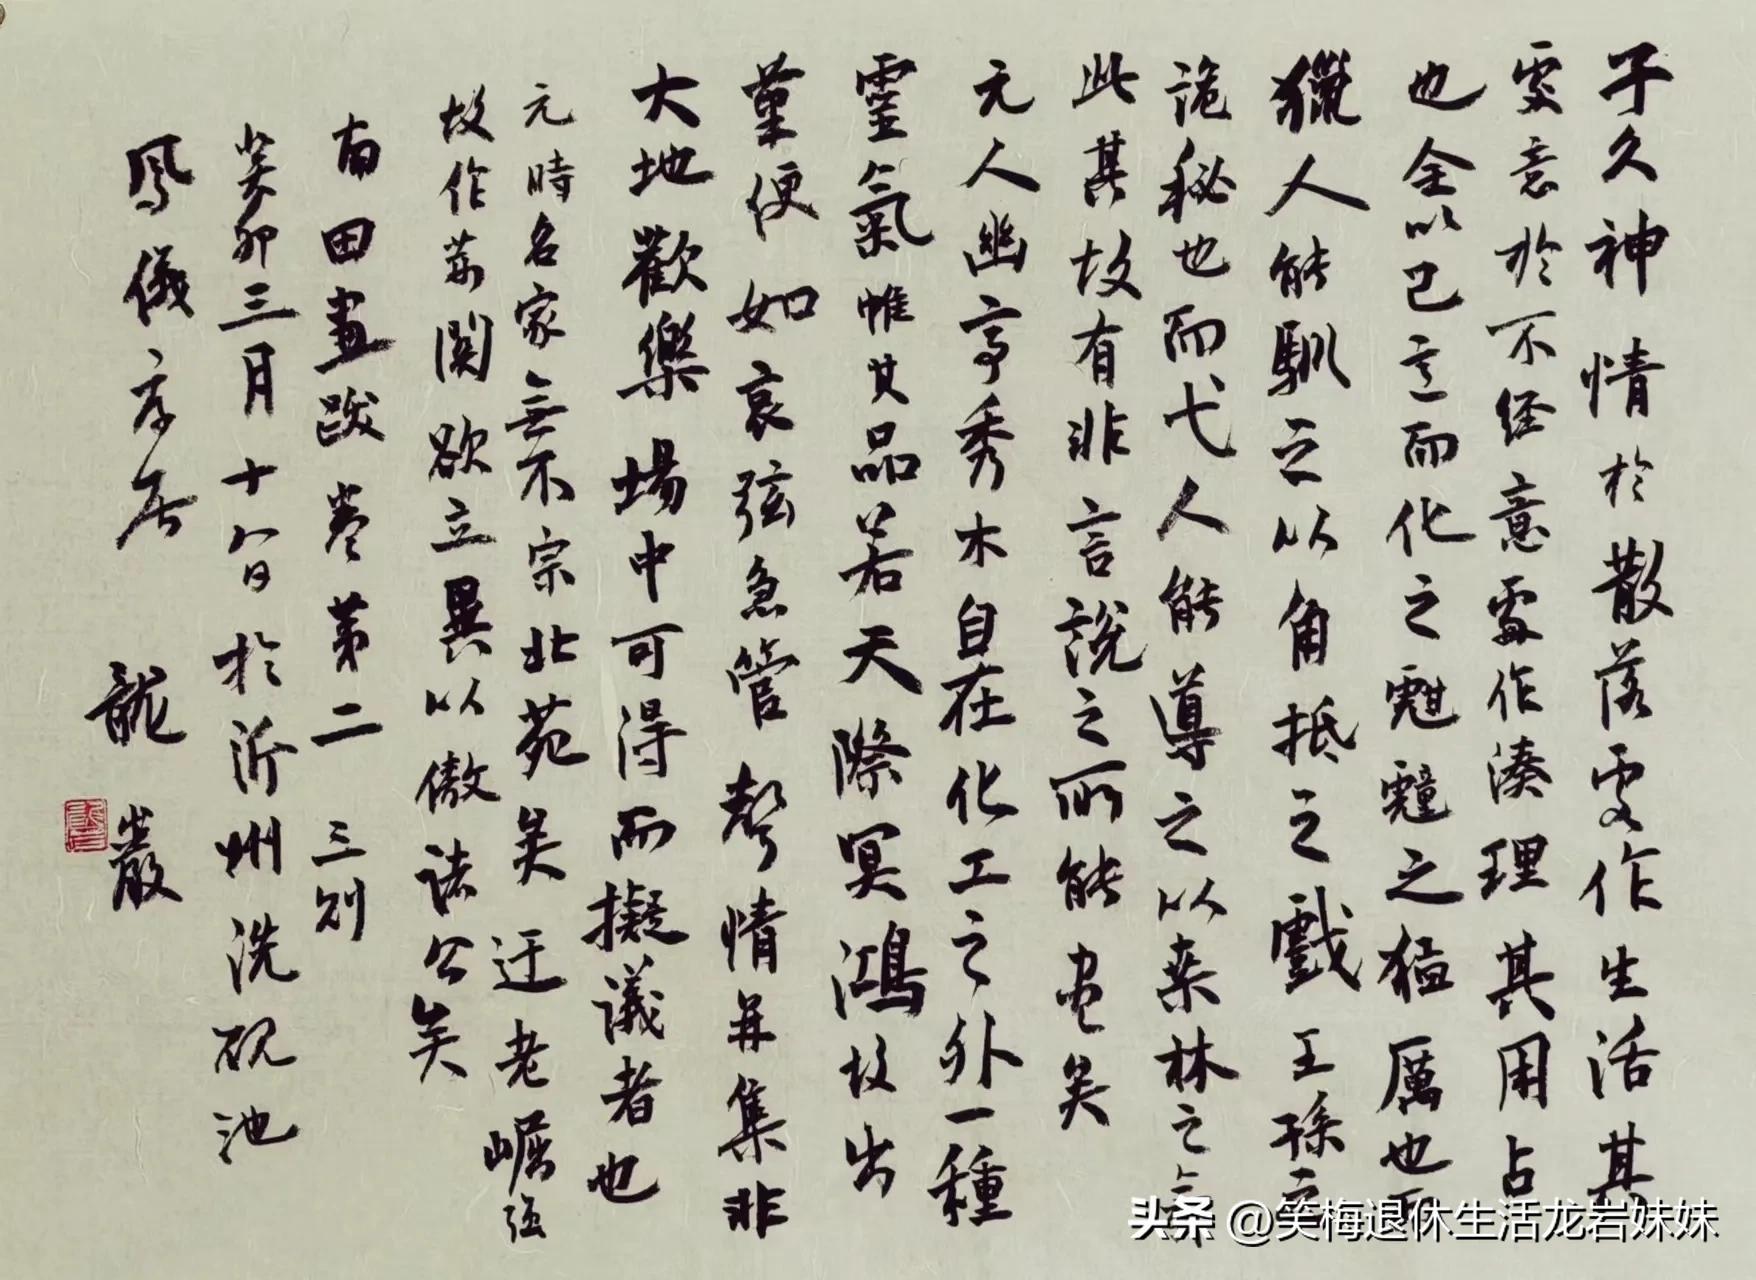 子久神情於散落處作生活其
處意於不經意處作湊理其用占
也全以己意而化之魁魖之猛厲也而
獵人能馴之以角抵之戲王孫之
詭秘也而弋人能導之以桑林之
此其故有非言說之所能盡矣
元人幽亭秀木自在化工之外一種
靈氣惟其品若天際冥鴻故出
筆便如哀弦急管聲情并集非
大地歡樂場中可得而擬議者也
元時名家無不宗北苑矣迂老崛强
故作荊関欲立異以傲諸公矣
南田畫跋卷第二 三則
癸卯三月十八日於沂州洗硯池
鳳儀亭居 龍巖
头条 @笑梅退休生活龙岩妹妹